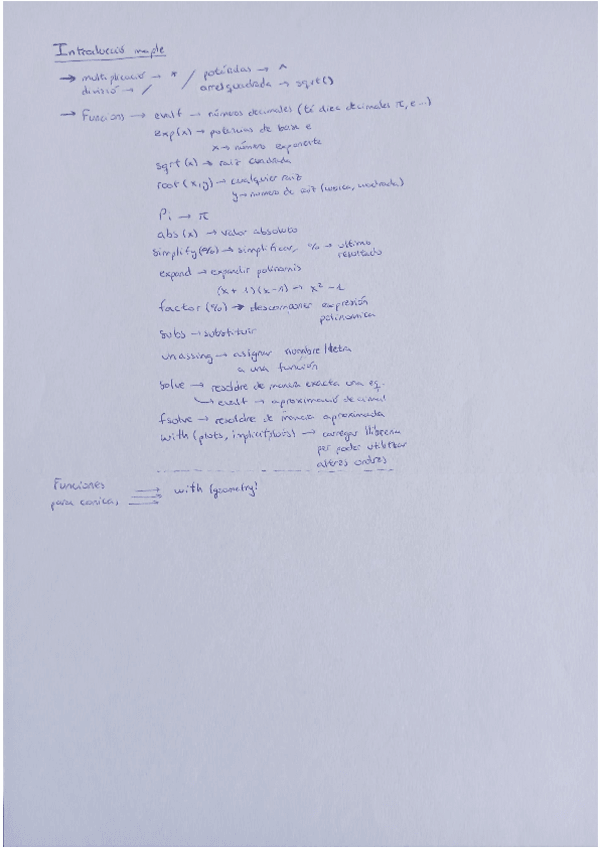 Introducció maple
→ multiplicació → * / potències → ^
divisió → / arrel quadrada → sqrt()
→ Funcions → evalf → números decimales (té diez decimales π, e...)
exp(x) → potencias de base e
x → número exponente
sqrt(x) → raiz cuadrada
root(x,y) → cualquier raiz
y → numero de raiz (cubica, cuadrada)
Pi → π
abs(x) → valor absoluto
simplify(%) → simplificar, % → ultimo
resultado
expand → expandir polinomis
(x + 1)(x - 1) → x² - 1
factor(%) → descomponer expresión
polinomica
subs → substituir
unassing → asignar nombre/letra
a una función
solve → resoldre de manera exacta una eq.
↳ evalf → aproximació decimal
fsolve → resoldre de manera aproximada
with(plots, implicitplots) → carregar llibreria
per poder utilitzar
altres ordres
Funciones
para conicas → with (geometry)